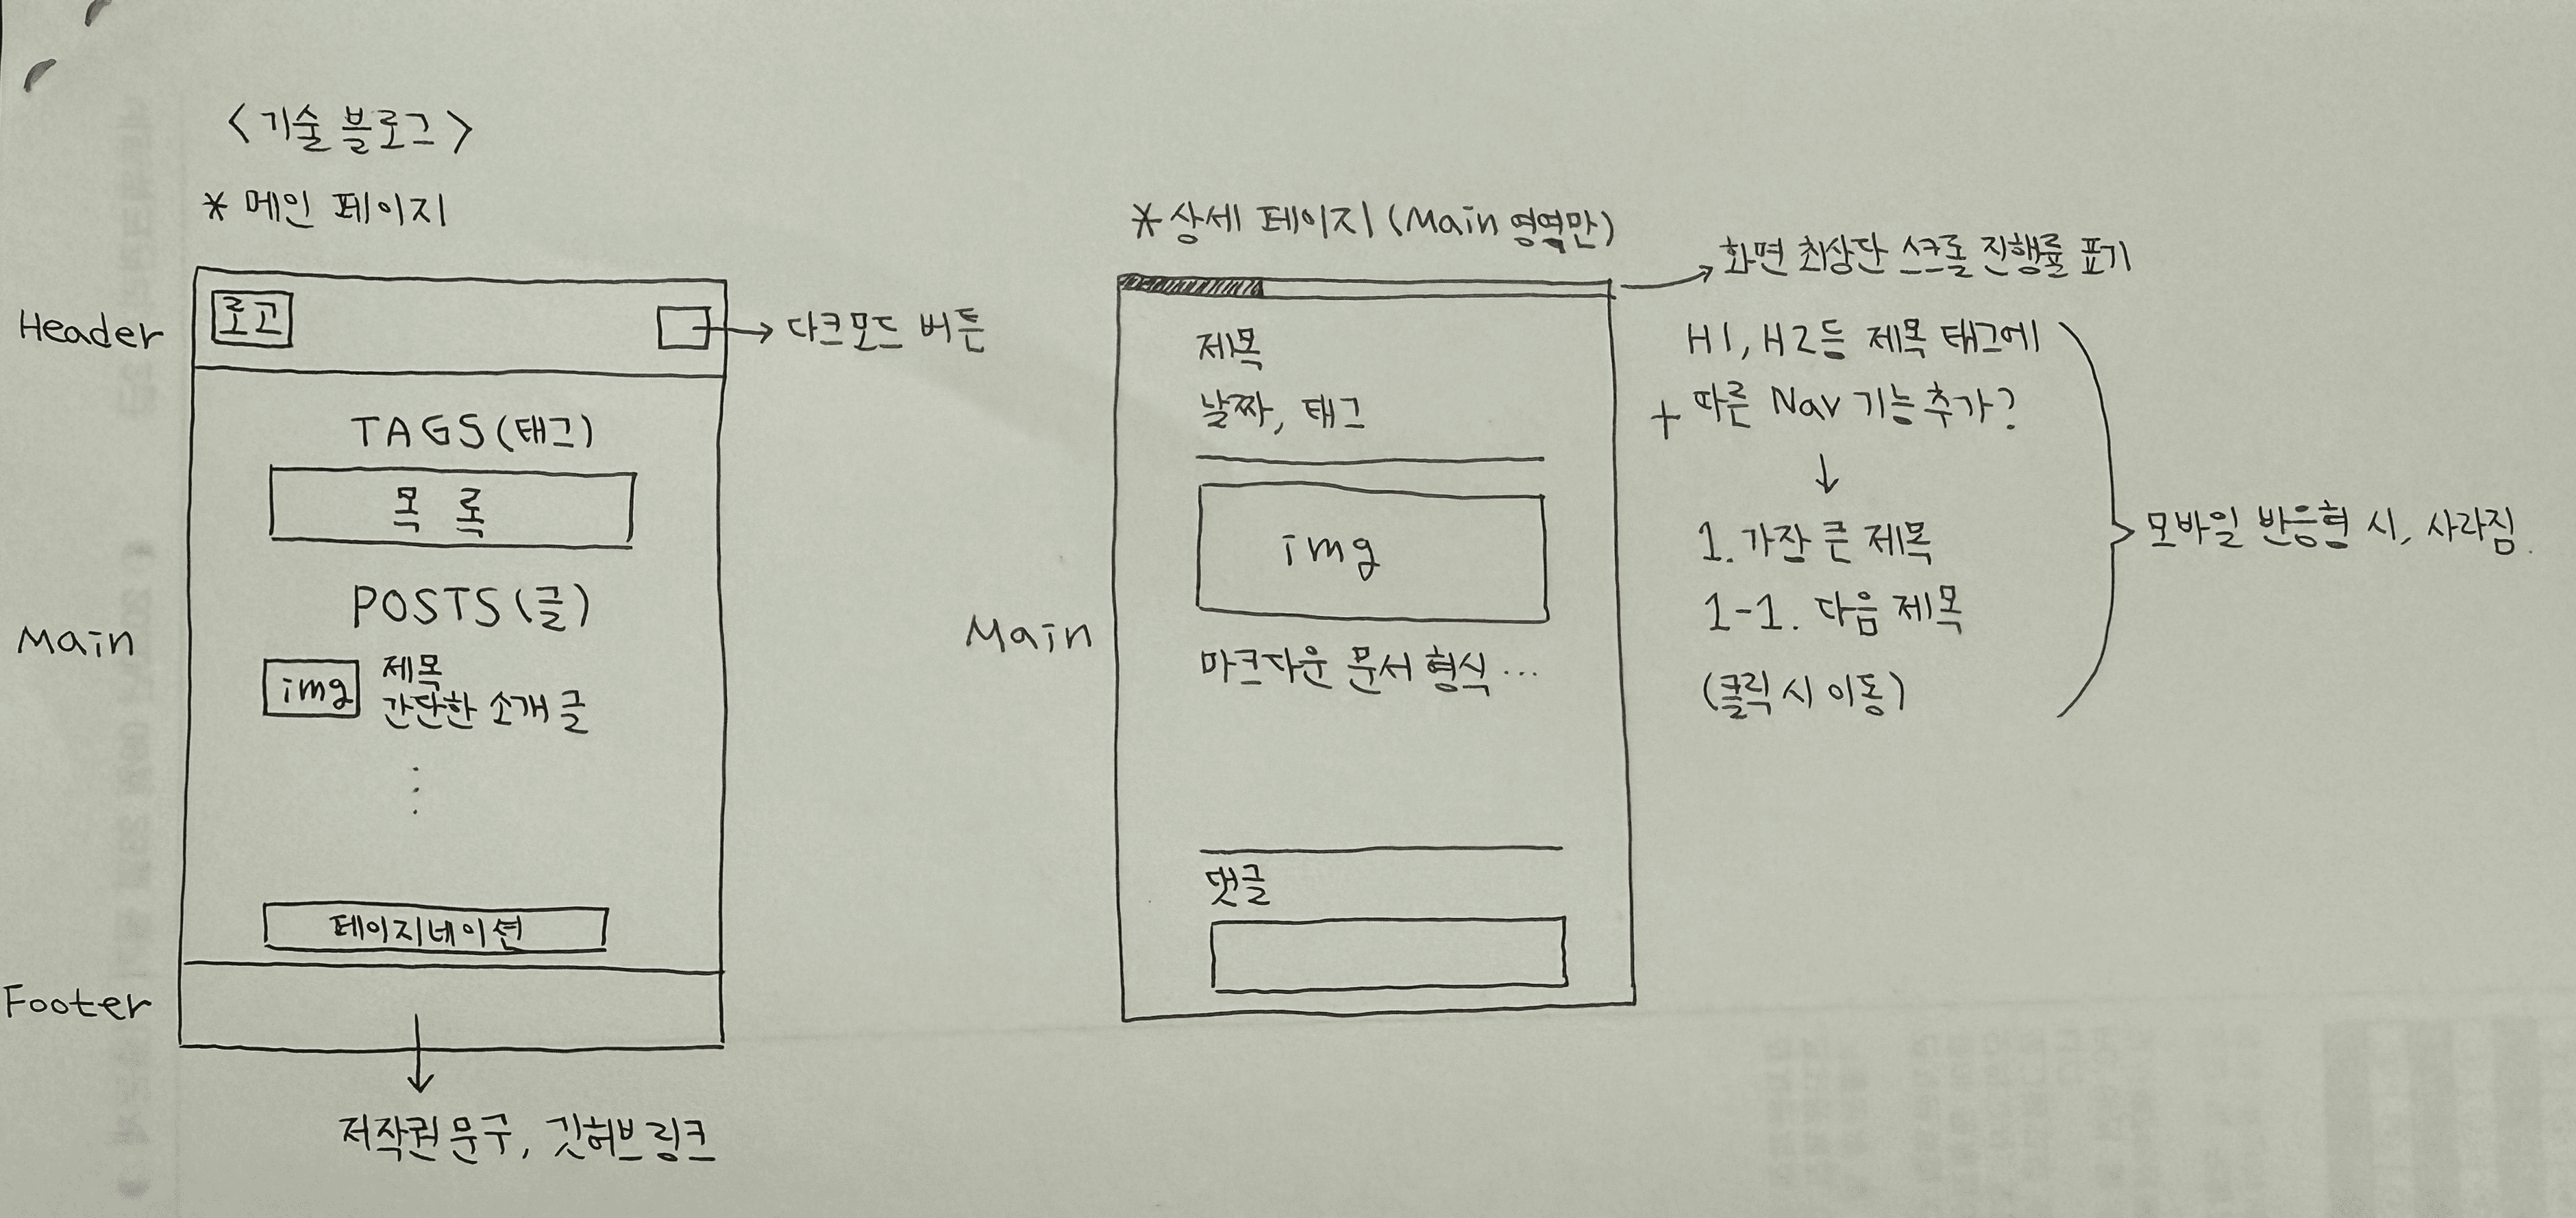 <기술 블로그>
* 메인 페이지
Header
로고
다크모드 버튼
TAGS (태그)
목 록
POSTS (글)
Main
img
제목
간단한 소개 글
페이지네이션
Footer
저작권 문구, 깃허브 링크
* 상세 페이지 (Main 영역만)
화면 최상단 스크롤 진행률 표기
제목
날짜, 태그
img
Main
마크다운 문서 형식 ...
댓글
H1, H2등 제목 태그에
+ 따른 Nav 기능 추가?
1. 가장 큰 제목
1-1. 다음 제목
(클릭 시 이동)
모바일 반응형 시, 사라짐.